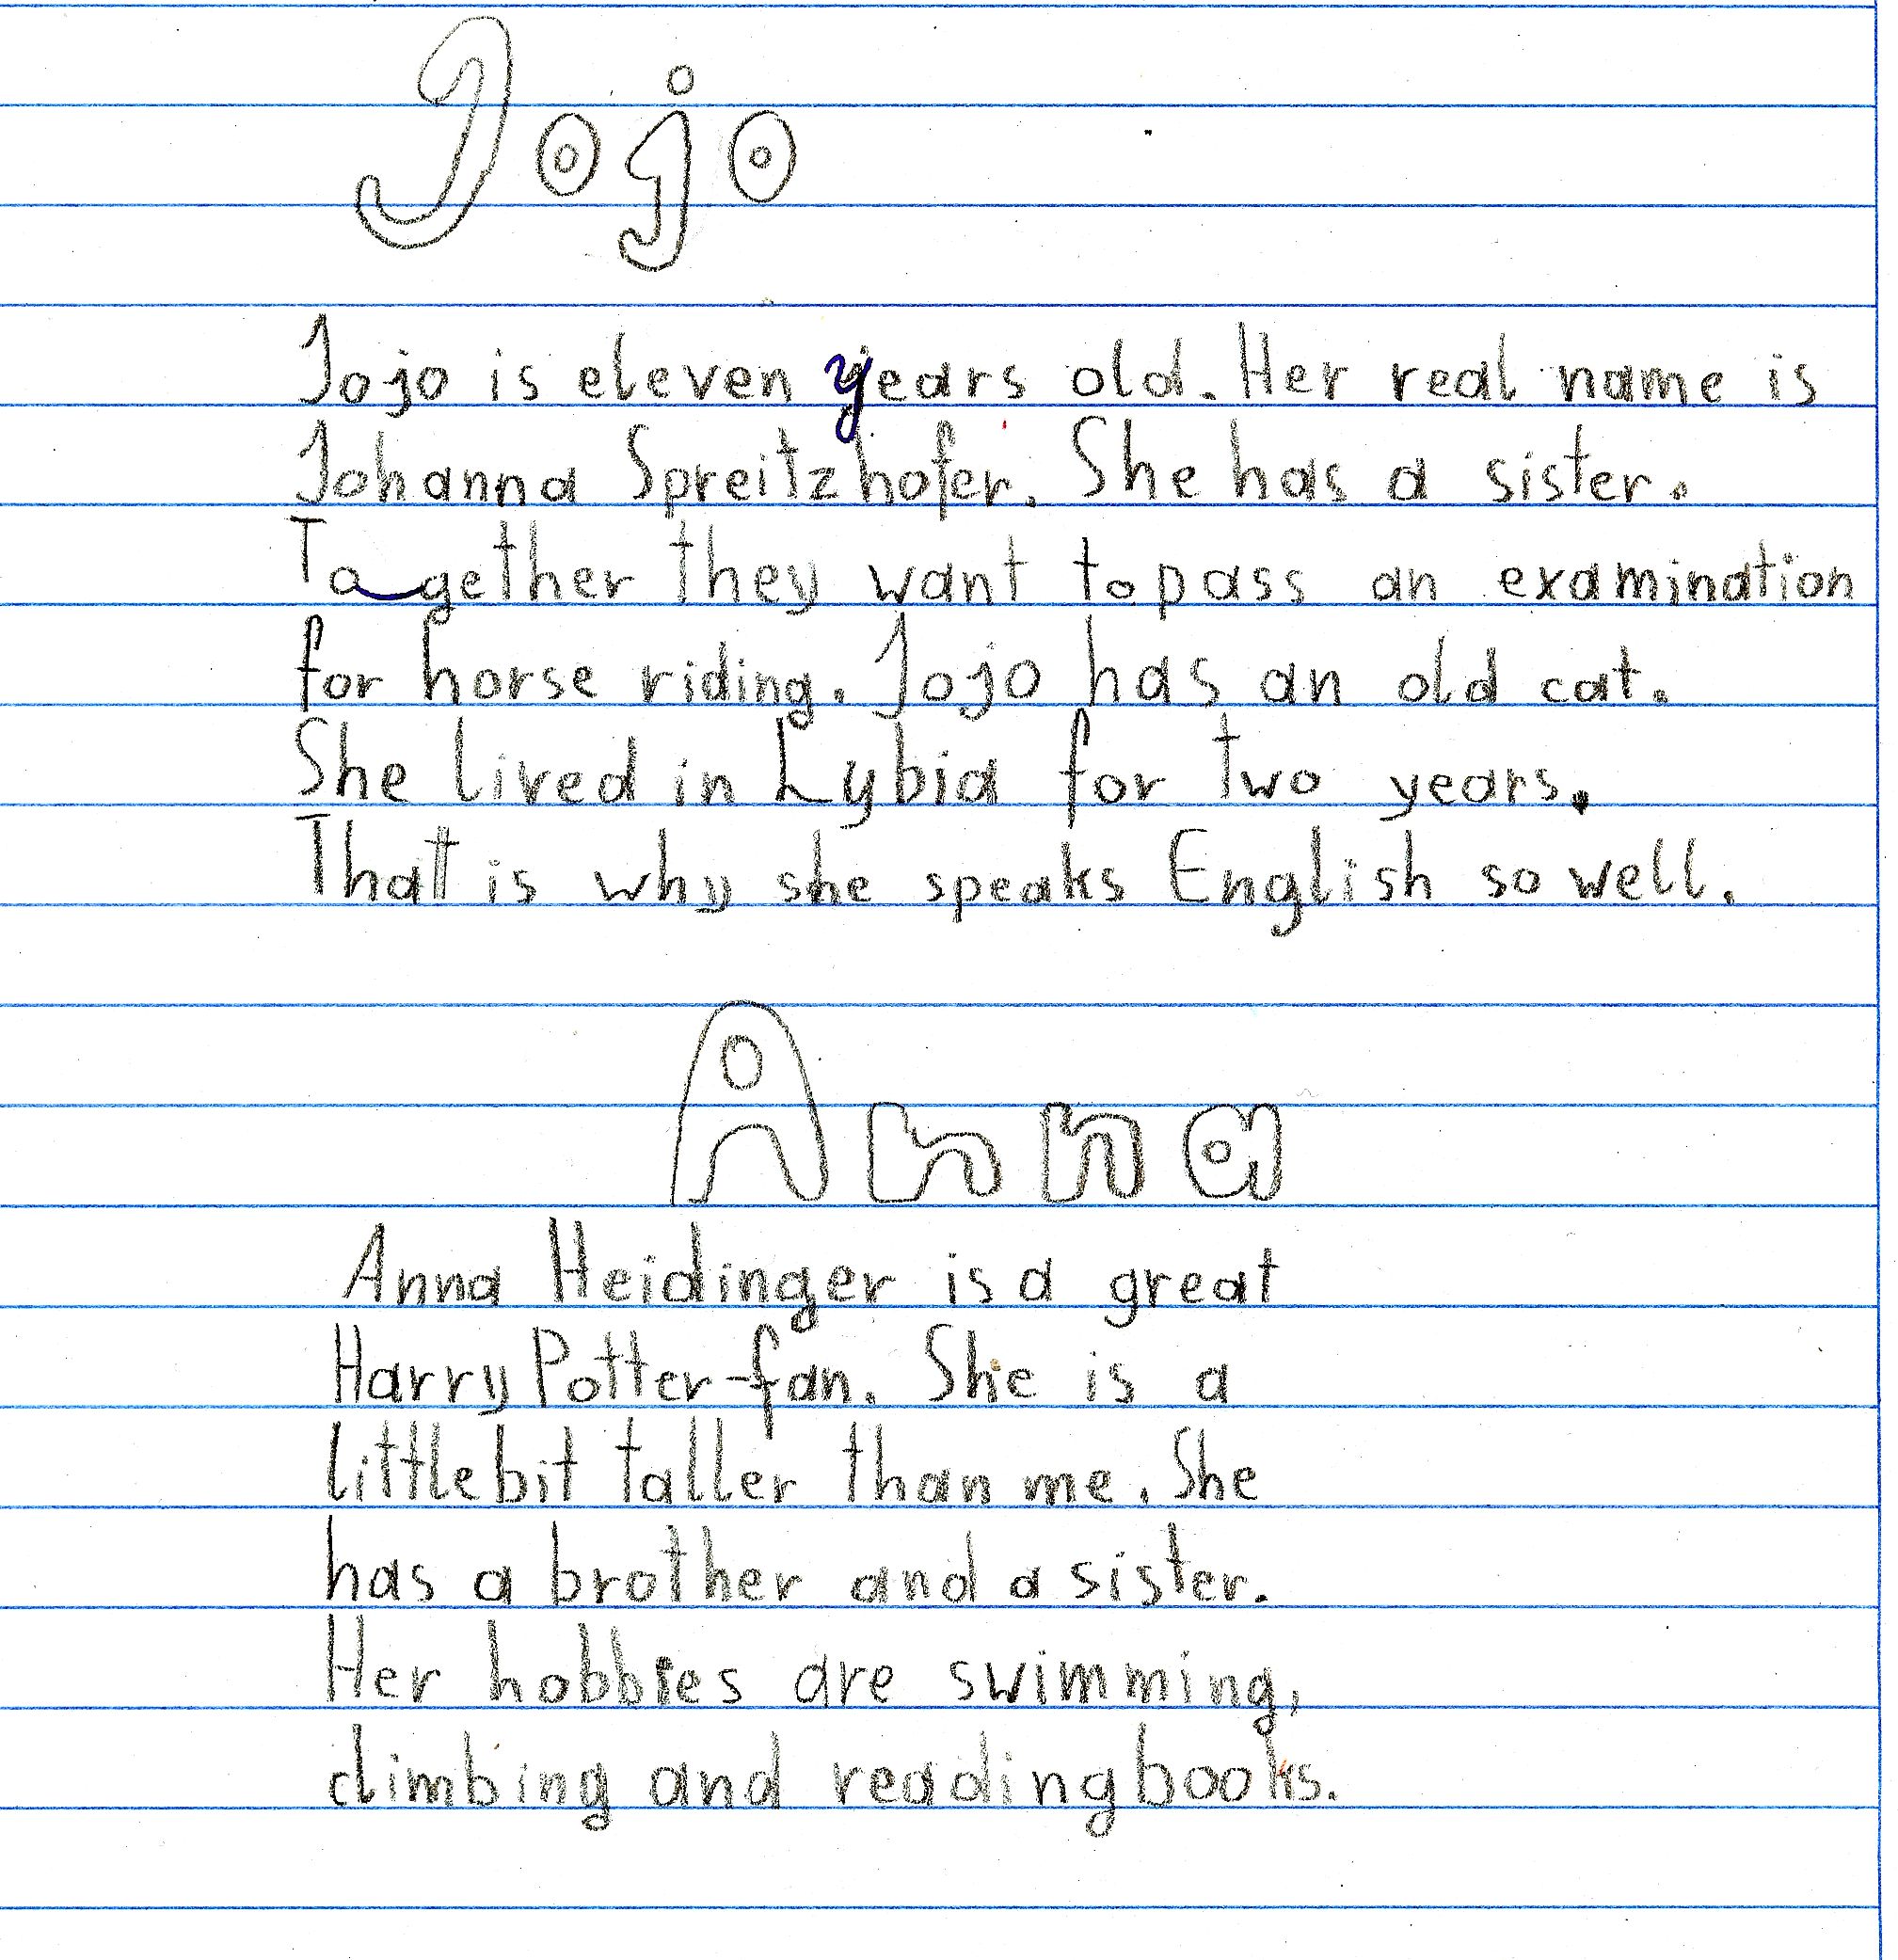 Jojo
Jojo is eleven years old. Her real name is
Johanna Spreitzhofer. She has a sister.
Tagether they want to pass an examination
for horse riding. Jojo has an old cat.
She lived in Lybia for two years.
That is why she speaks English so well.
Anna
Anna Heidinger is a great
Harry Potter-fan. She is a
little bit taller than me. She
has a brother and a sister.
Her hobbies are swimming,
climbing and reading books.